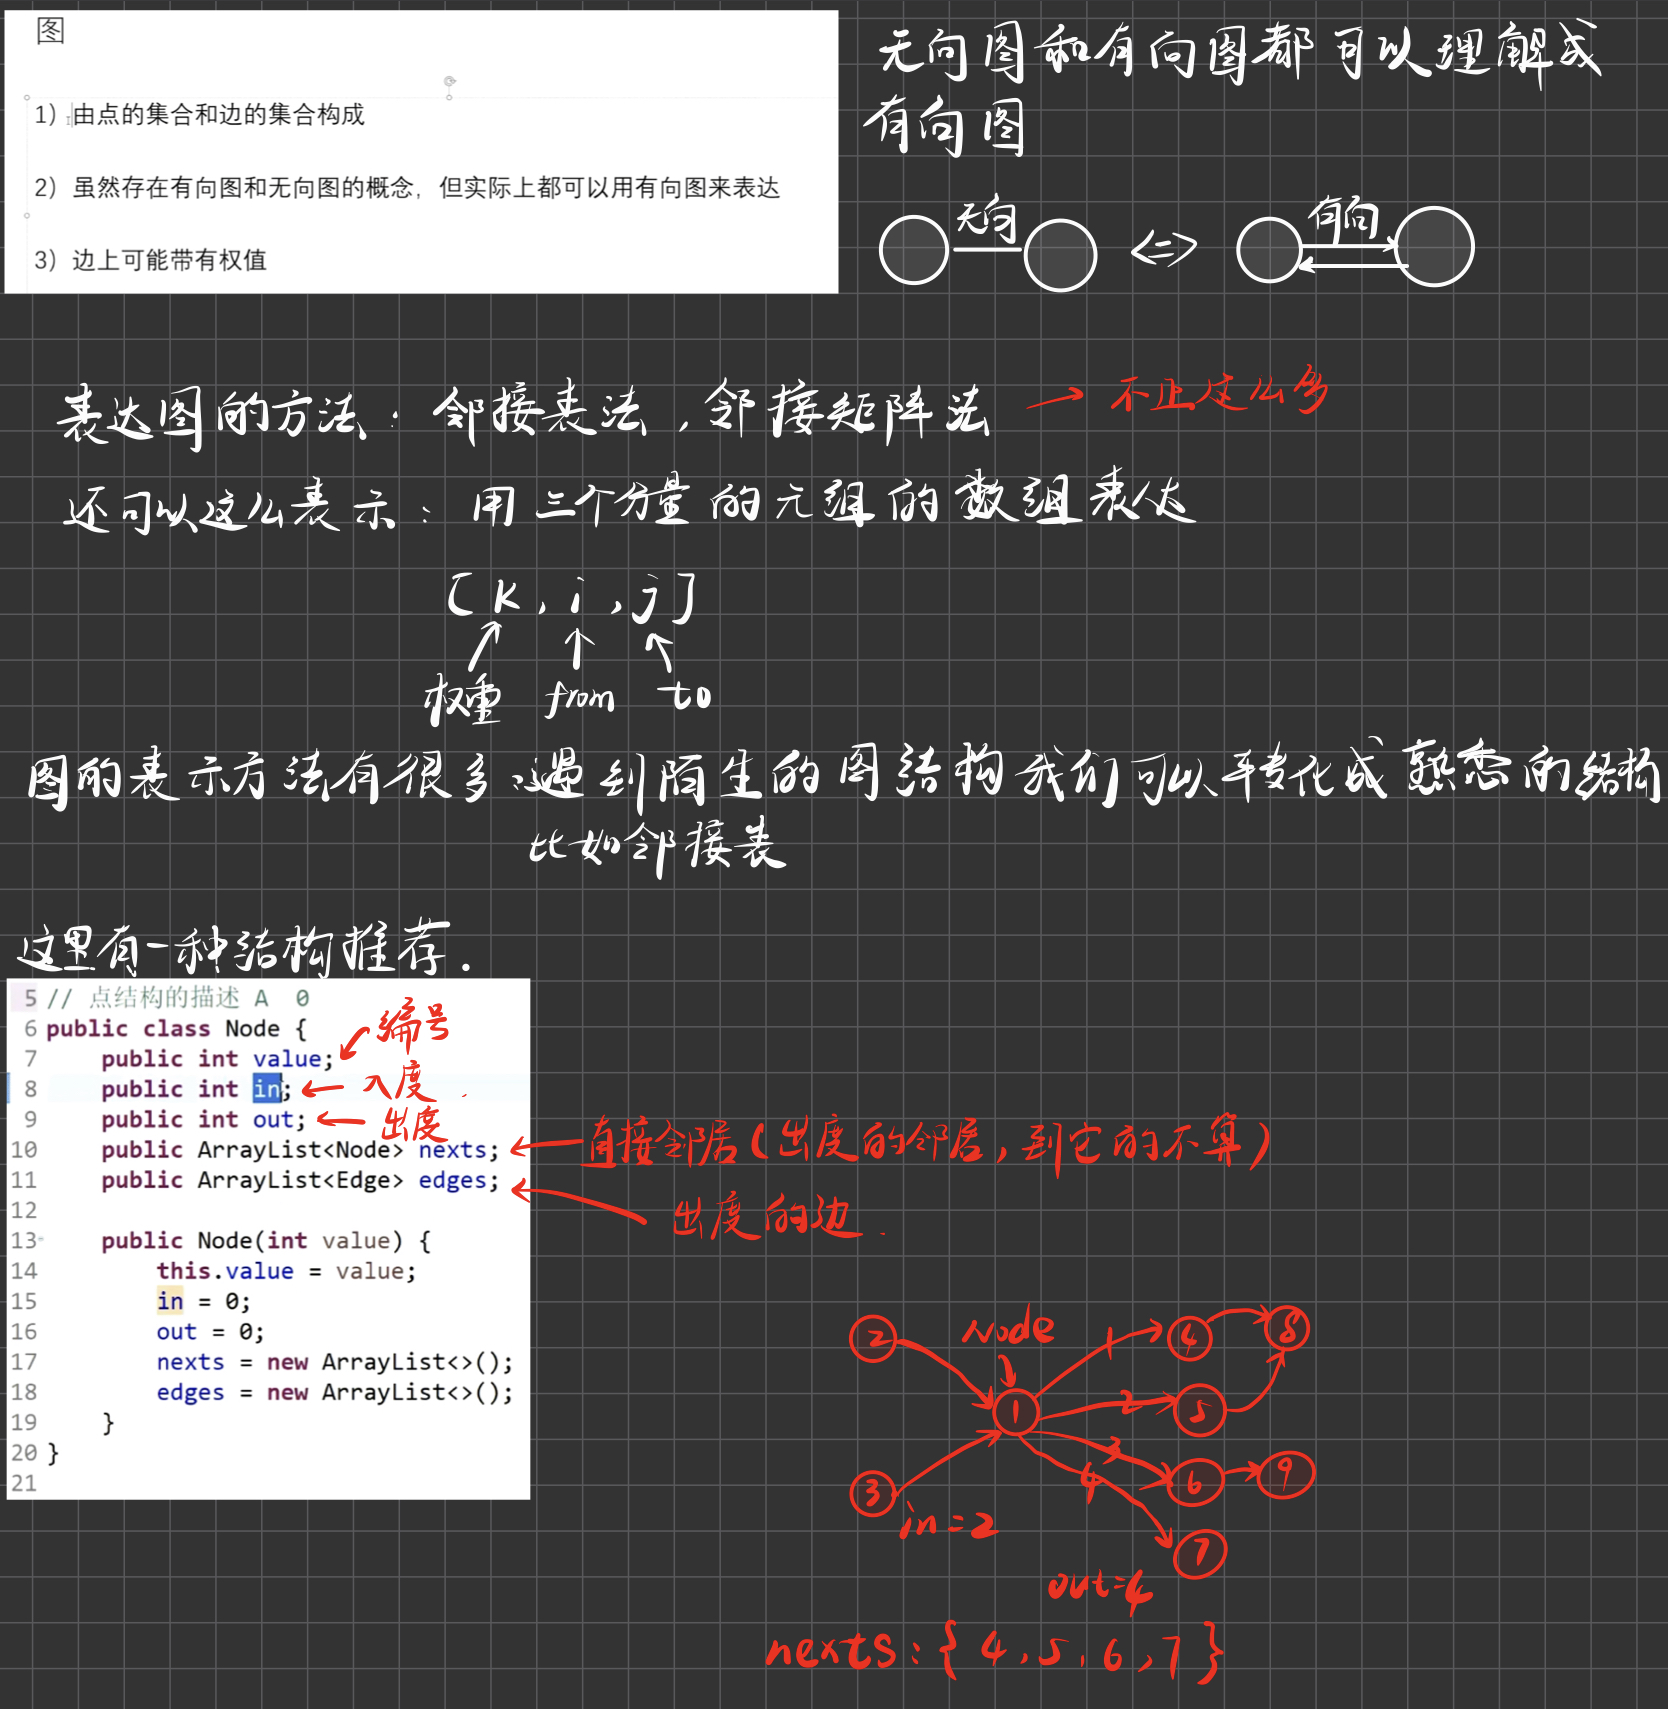 图
1）由点的集合和边的集合构成
2）虽然存在有向图和无向图的概念，但实际上都可以用有向图来表达
3）边上可能带有权值
无向图和有向图都可以理解成
有向图
无向 <=> 有向
表达图的方法：邻接表法，邻接矩阵法 → 不止这么多
还可以这么表示：用三个分量的元组的数组表达
[k, i, j]
权重 from to
图的表示方法有很多.遇到陌生的图结构我们可以转化成熟悉的结构
比如邻接表
这里有一种结构推荐.
5 // 点结构的描述 A 0
6 public class Node {
编号
7 public int value;
8 public int in; ← 入度.
9 public int out; ← 出度
10 public ArrayList<Node> nexts; ← 直接邻居(出度的邻居,到它的不算)
11 public ArrayList<Edge> edges; ← 出度的边.
12
13 public Node(int value) {
14 this.value = value;
15 in = 0;
16 out = 0;
17 nexts = new ArrayList<>();
18 edges = new ArrayList<>();
19 }
20 }
21
2 Node 1 4 8
1 2 5
3 4 6 9
3 in=2
7
out=4
nexts:{4,5,6,7}